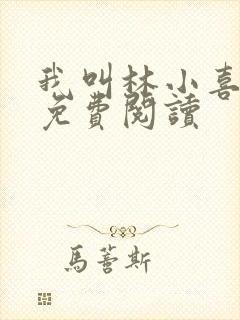 我叫林小喜
免費閱讀
馬薈斯